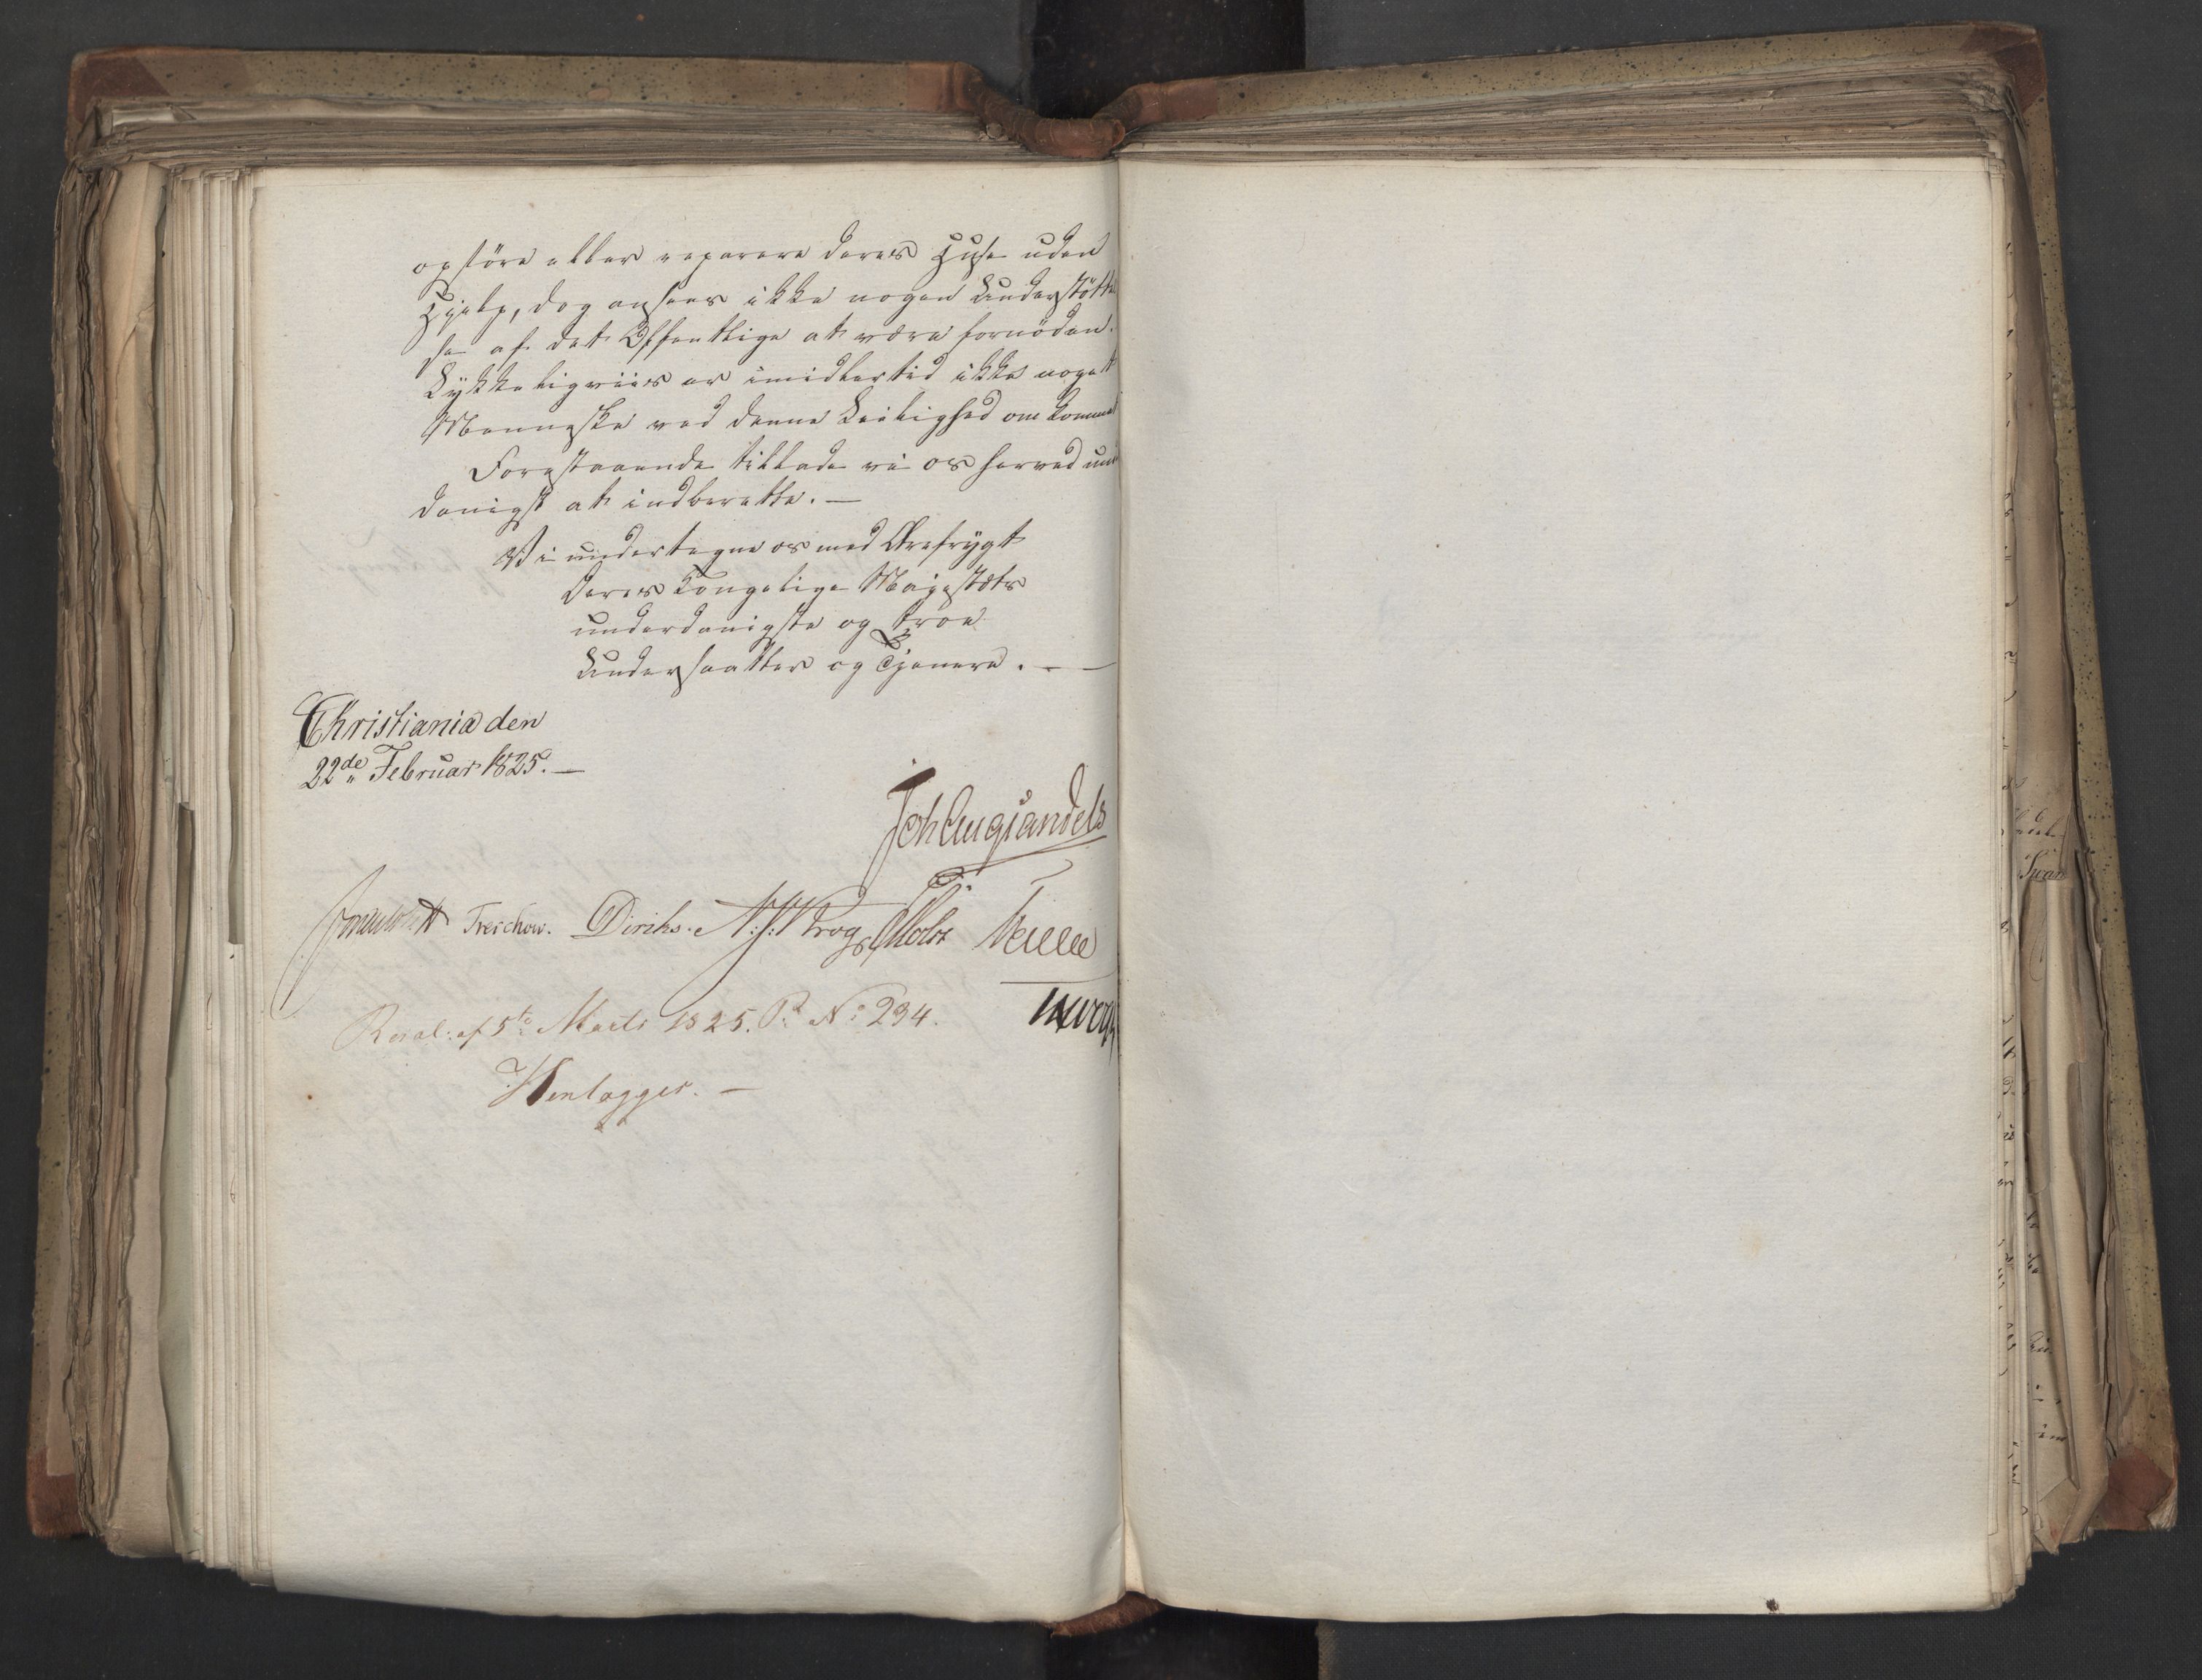 opføre eller reparere deres Huse uden
Hjelp, dog ansees ikke nogen Understøttel
se af det Offentlige at være fornøden.
Lykkeligviis er imidlertid ikke noget
Menneske ved denne Leilighed omkommet
Forestaaende tillade vi os herved un
danigst at indberette. —
Vi undertegne os med Ærefrygt
Deres Kongelige Majestæts
underdanigste og troe
Undersaatter og Tjenere. —
Christiania den
22de Februar 1825. —
Joh Aug Sandels
Jonas Collett Treschow. Diriks. N. J. Krog Motzfeldt
Resol: af 5te Marts 1825. P. No 234.
Henlægges. —